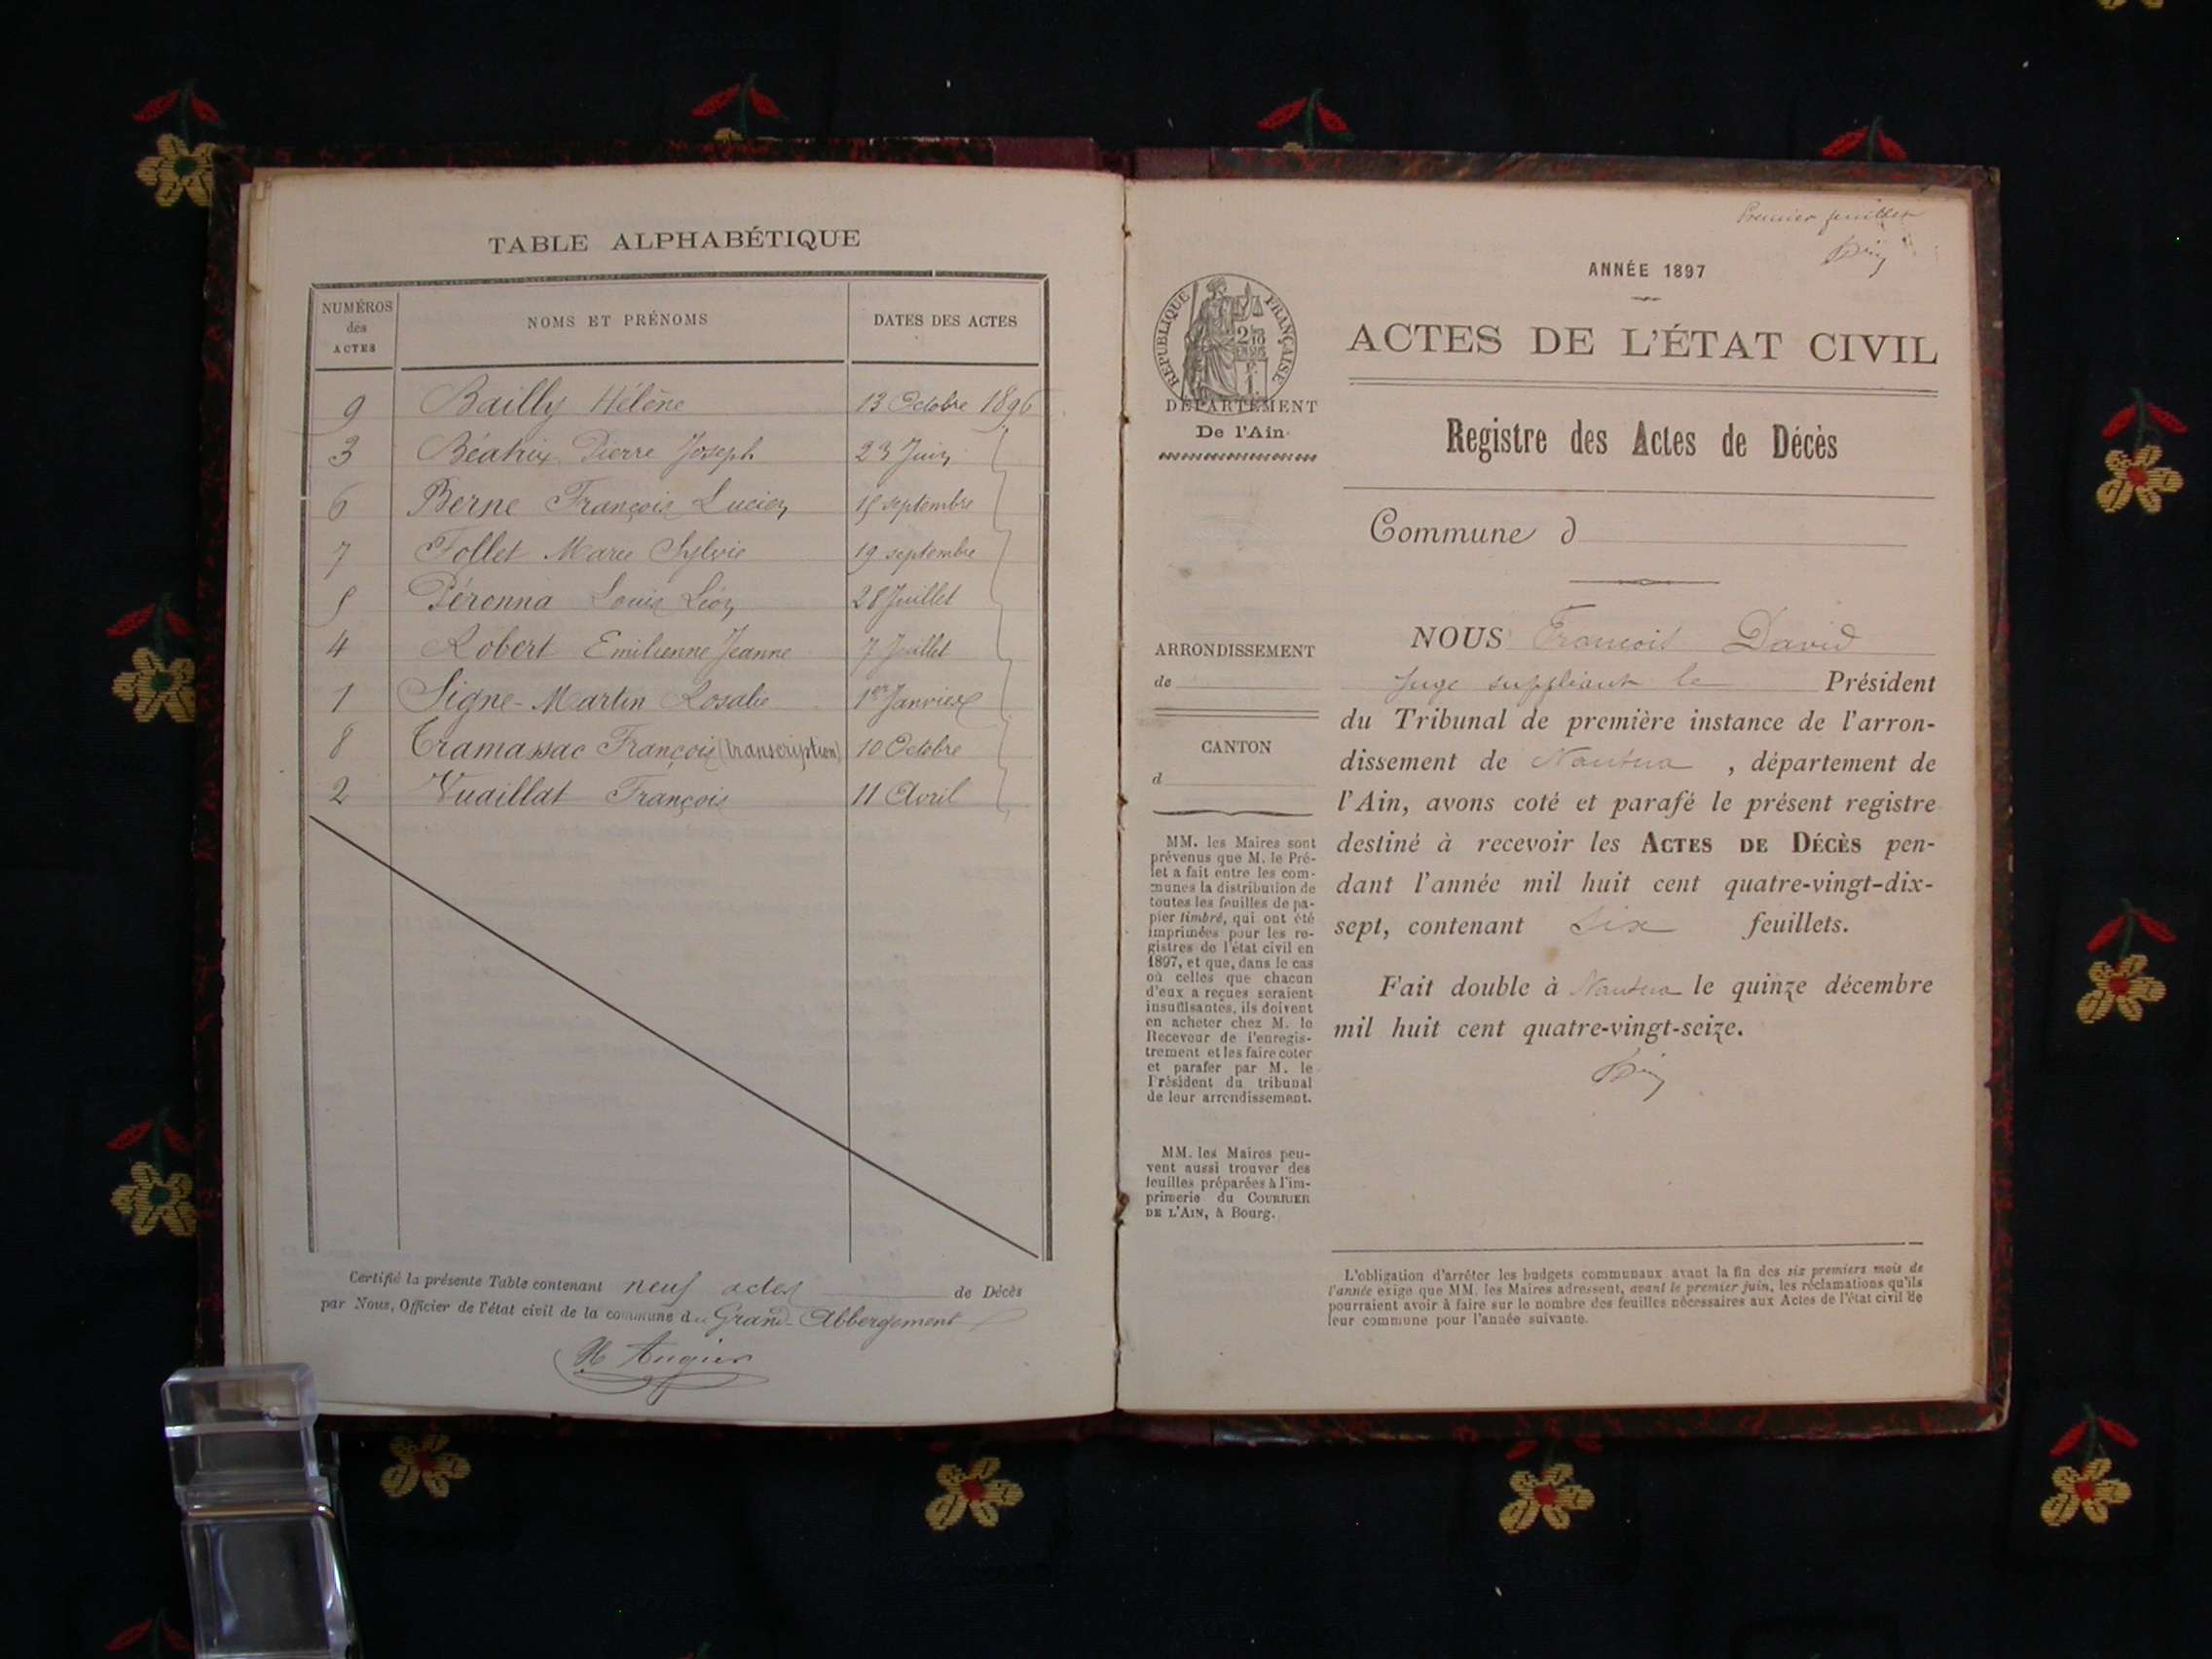 TABLE ALPHABÉTIQUE
NUMÉROS des ACTES NOMS ET PRÉNOMS DATES DES ACTES
9 Bailly Hélène 13 Octobre 1896
3 Béatrix Pierre Joseph 23 Juin
6 Berne François Lucien 15 septembre
7 Follet Marie Sylvie 19 septembre
5 Péronna Louis Léon 28 Juillet
4 Robert Emilienne Jeanne 7 Juillet
1 Signe-Martin Rosalie 1er Janvier
8 Tramassac François (transcription) 10 Octobre
2 Vuaillat François 11 Avril
Certifié la présente Table contenant neuf actes de Décès
par Nous, Officier de l'état civil de la commune du Grand-Abbergement
Augier
Premier feuillet
ANNÉE 1897
ACTES DE L'ÉTAT CIVIL
RÉPUBLIQUE FRANÇAISE
DÉPARTEMENT
De l'Ain
Registre des Actes de Décès
Commune d
ARRONDISSEMENT
de
CANTON
d
MM. les Maires sont
prévenus que M. le Pré-
fet a fait entre les com-
munes la distribution de
toutes les feuilles de pa-
pier timbré, qui ont été
imprimées pour les re-
gistres de l'état civil en
1897, et que, dans le cas
où celles que chacun
d'eux a reçues seraient
insuffisantes, ils doivent
en acheter chez M. le
Receveur de l'enregis-
trement et les faire coter
et parafer par M. le
Président du tribunal
de leur arrondissement.
MM. les Maires peu-
vent aussi trouver des
feuilles préparées à l'im-
primerie du COURRIER
DE L'AIN, à Bourg.
NOUS François David
Juge suppléant le Président
du Tribunal de première instance de l'arron-
dissement de Nantua, département de
l'Ain, avons coté et parafé le présent registre
destiné à recevoir les ACTES DE DÉCÈS pen-
dant l'année mil huit cent quatre-vingt-dix-
sept, contenant six feuillets.
Fait double à Nantua le quinze décembre
mil huit cent quatre-vingt-seize.
L'obligation d'arrêter les budgets communaux avant la fin des six premiers mois de
l'année exige que MM. les Maires adressent, avant le premier juin, les réclamations qu'ils
pourraient avoir à faire sur le nombre des feuilles nécessaires aux Actes de l'état civil de
leur commune pour l'année suivante.